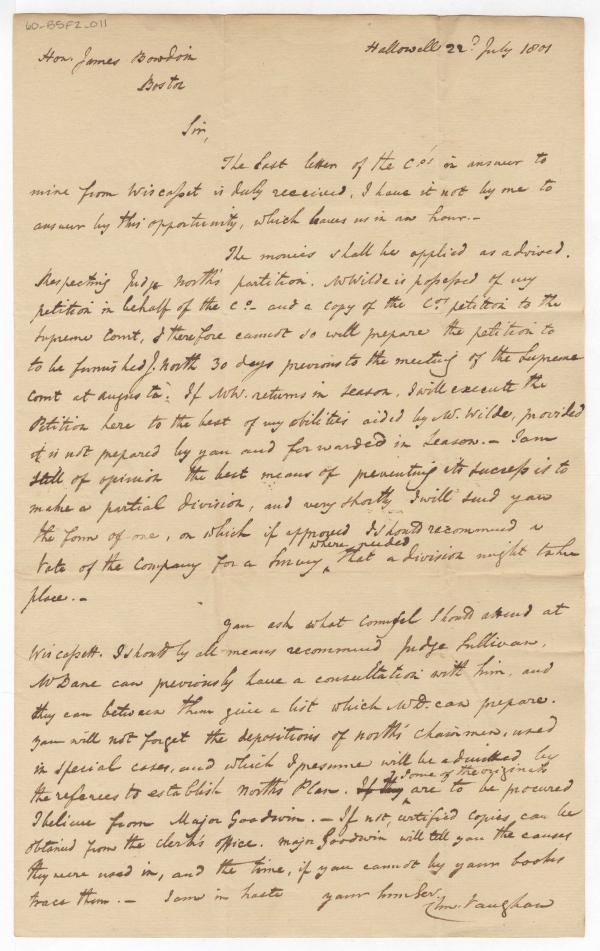 60-BSF2-011
Hallowell 22d July 1801
Hon. James Bowdoin
Boston
Sir,
The Last letter of the Cos in answer to
mine from Wiscasset is duly received, I have it not by me to
answer by this opportunity, which leaves us in an hour.-
The monies shall be applied as advised.
Respecting Judge North's partition. Mr Wilde is possessed of my
petition in behalf of the Co- and a copy of the Cos petition to the
Supreme Court, I therefore cannot so will prepare the petition to
to be furnished J. North 30 days previous to the meeting of the Supreme
Court at Augusta. If Mr W. returns in season, I will execute the
Petition here to the best of my abilities aided by Mr. Wilde, provided
it is not prepared by you and forwarded in Season.- I am
still of opinion the best means of preventing its success is to
make a partial division, and very shortly I will send you
the form of one, on which if approved I should recommend a
Vote of the Company for a Survey where needed that a division might take
place.-
You ask what Counsel should attend at
Wiscassett. I should by all means recommend Judge Sullivan,
Mr Dane can previously have a consultation with him, and
they can between them give a list which Mr D. can prepare.
You will not forget the depositions of North's Chainmen, used
in special cases, and which I presume will be admitted by
the referees to establish North's Plan. If they Some of the originals are to be procured
I believe from Major Goodwin.- If not, certified copies can be
obtained from the clerk's office. Major Goodwin will tell you the causes
they were used in, and the time, if you cannot by your books
trace them.- I am in haste your hum Ser.
Chas. Vaughan